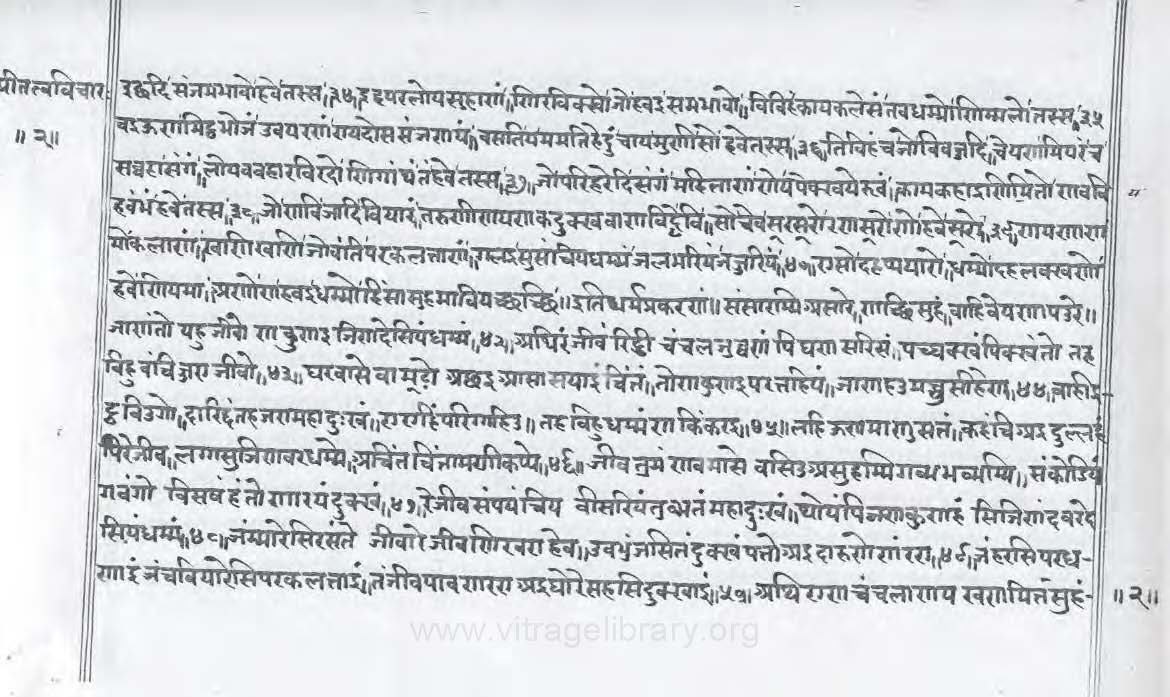 प्रीतत्वविचार
॥२॥
इछदि संजमभावो हवे तस्स ॥३४॥ इहपरलोयसुहाणं णिरविक्खो जो हवइ समभावो ॥ विविहं कायकलेसं तवधम्मो णिम्मलो तस्स ॥३५
चइऊण मिट्ठभोजं उवयरणं रायदोससंजणयं ॥ वसतियममतिहेदुं चायमुणी सो हवे तस्स ॥३६॥ तिविहं च जो विवज्जदि ॥ चेयणमियरं च
सव्वहा संगं ॥ लोयववहारविरदो णिगंथत्तं हवे तस्स ॥३७॥ जो परिहरेदि संगं महिलाणं णेय पेक्खये रूवं ॥ कामकहाइणियित्तो णवविह
हवंभं हवे तस्स ॥३८॥ जो णवि जादि वियारं तरुणियणकडुक्खवाणविद्धेवि ॥ सो चेव सूरसूरो रणसूरो णो हवे सूरो ॥३९॥ णयणाण
मोकलाणं खणि खणि जोवंति परकलत्ताणं ॥ गलइ सुसंचियधम्मं जलभरियं जज्जरियं ॥४०॥ एसो दहप्पयारो धम्मो दहलक्खणो
हवे णियमा ॥ अणो ण हवइ धम्मो हिंसा सुहमा वि यच्छच्छि ॥ इति धर्मप्रकरणं ॥ संसारम्मि असारे णच्छि सुहं वाहिवेयणापउरे ॥
जाणंतो यहु जीवो ण कुणइ जिणदेसियं धम्मं ॥४२॥ अथिरं जीवं रिद्धी चंचल जुव्वणं पि घणसरिसं ॥ पच्चक्खं पिक्खंतो तह
विहु वंचिज्जए जीवो ॥४३॥ घरवासे वामूढो अछइ आसासयाइं चिंतंतो ण कुणइ परत्तहियं ॥ जाणहउ मच्चुसीहेण ॥४४॥ वाही इ-
ट्ठविउगो ॥ दारिद्दं तह जरामहादुःखं ॥ एएहिं परिगहिउ ॥ तह विहु धम्मं ण किं करइ ॥४५॥ लहिऊण माणुसत्तं कहंचि अइदुल्लहं
पिरे जीव ॥ लगसु जिणवरधम्मे अचिंतचिंतामणीकप्पे ॥४६॥ जीव तुमं णवमासे वसिउ असुहम्मि गव्भमव्भम्मि ॥ संकोडियं
गवंगो विसहंतो णरयंदुक्खं ॥४७॥ रे जीव संपयं चिय वीसरियं तुव्भ तं महादुःखं ॥ थोयं पि जेण कुणहं सि जिणंदवरदे
सियं धम्मं ॥४८॥ जं मारेसि रसंते जीवो जीवणिरवराहेव ॥ उवभुंजसि तं दुक्खं पत्तो अइदारुणे णरए ॥४९॥ जं हरसि परध-
णाइं जं च वियारेसि परकलत्ताइं ॥ तं जीव पाव णरए अइघोरे सहसि दुक्खाइं ॥५०॥ अथिराण चंचलाण य खणमित्तसुहं-
॥२॥
www.vitragelibrary.org